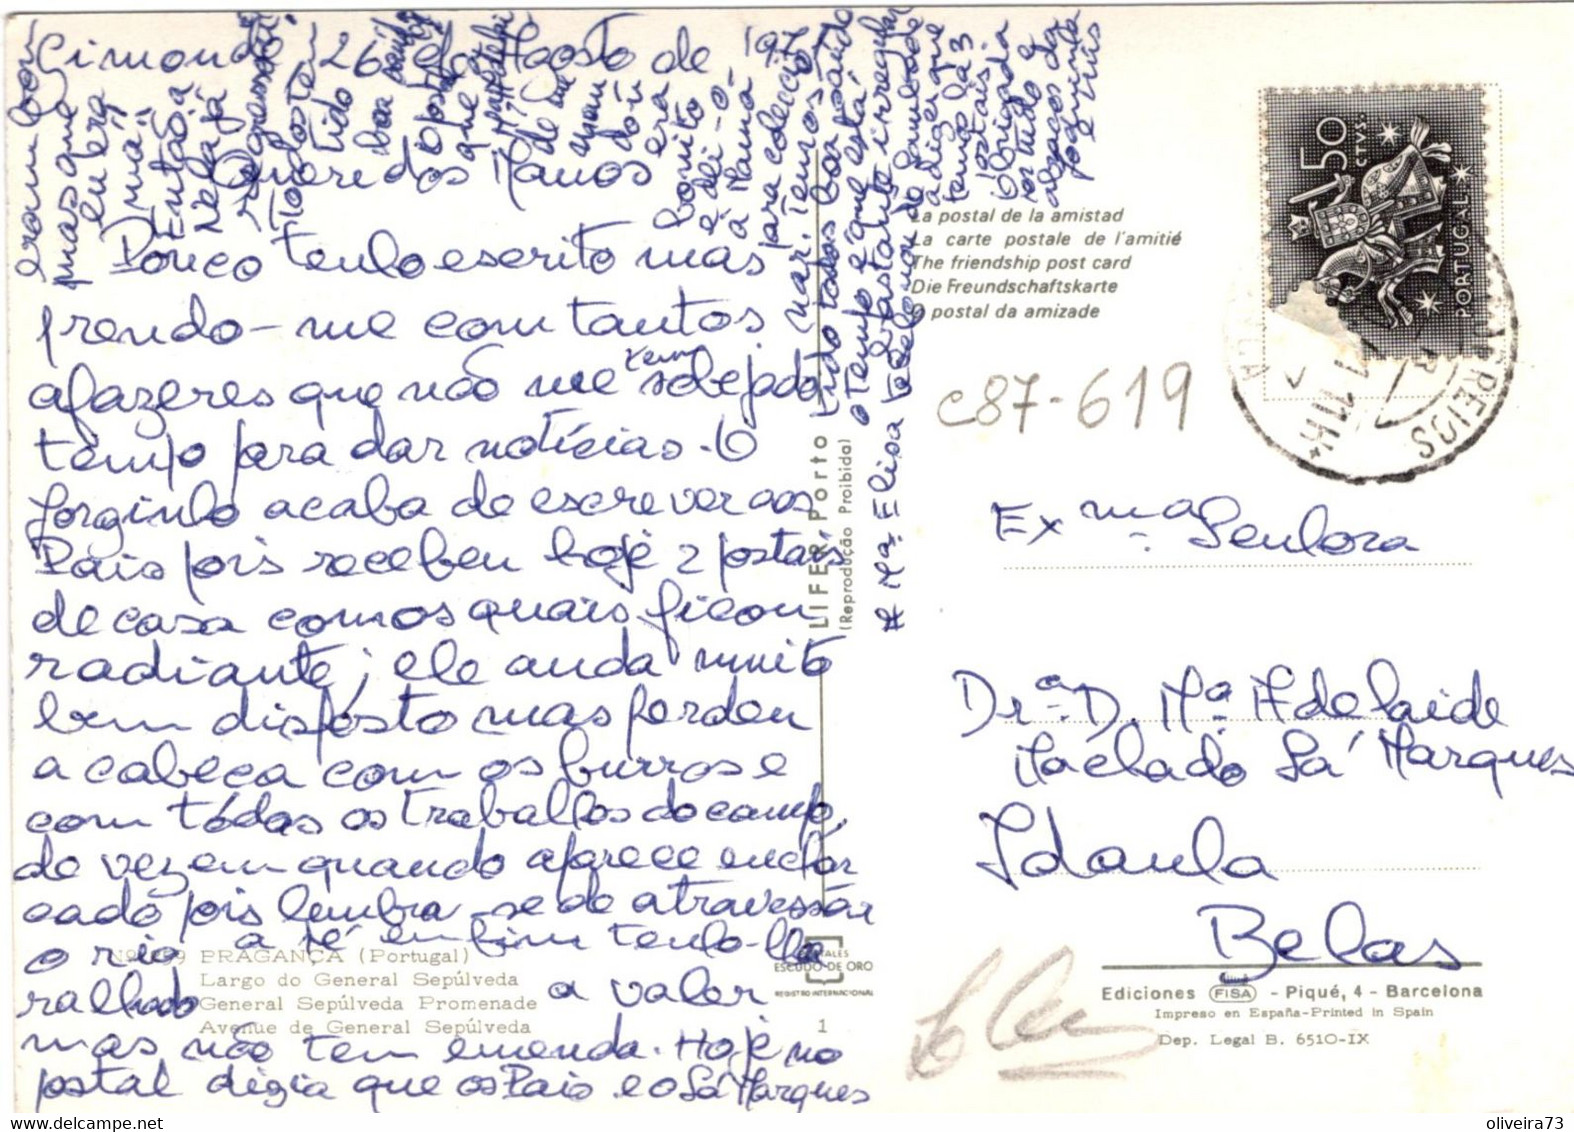 Gimonde 26 de Agosto de 197
Queridos Manos
Pouco tenho escrito mas
prendo-me com tantos
afazeres que não me tem sobejado
tempo para dar notícias. O
Jorginho acaba de escrever aos
Pais pois recebeu hoje 2 postais
de casa com os quais ficou
radiante; ele anda muito
bem disposto mas perdeu
a cabeça com os burros e
com todos os trabalhos do campo,
de vez em quando aparece enchar
cado pois lembra-se de atravessar
o rio a pé enfim tenho-lhe
ralhado a valer
mas não tem emenda. Hoje no
postal dizia que os Pais e o Sá Marques
eram bons
mas que
eu era
má
Então a
Néné já
regressou?
Todos te
Tido
boa
O postal
que
era
bonito
e dei-o
à Mamã
para colecção
Mar. Temos
tido todos boa saúde
o tempo é que está
bastante irregular
# Mª Elisa telefonou de
a dizer que
temos lá 3
postais.
Obrigada
por tudo e
abraços da
Joaquina
e
Nº 59 BRAGANÇA (Portugal)
Largo do General Sepúlveda
General Sepúlveda Promenade
Avenue de General Sepúlveda
1
LIFER, Porto
(Reprodução Proibida)
ESCUDO DE ORO
REGISTRO INTERNACIONAL
La postal de la amistad
La carte postale de l'amitié
The friendship post card
Die Freundschaftskarte
O postal da amizade
50 CTVS.
PORTUGAL
CORREIOS
11H
c87-619
Exma Senhora
Dra. D. Mª Adelaide
Machado Sá Marques
Idanha
Belas
Ediciones FISA - Piqué, 4 - Barcelona
Impreso en España-Printed in Spain
Dep. Legal B. 6510-IX
oliveira73